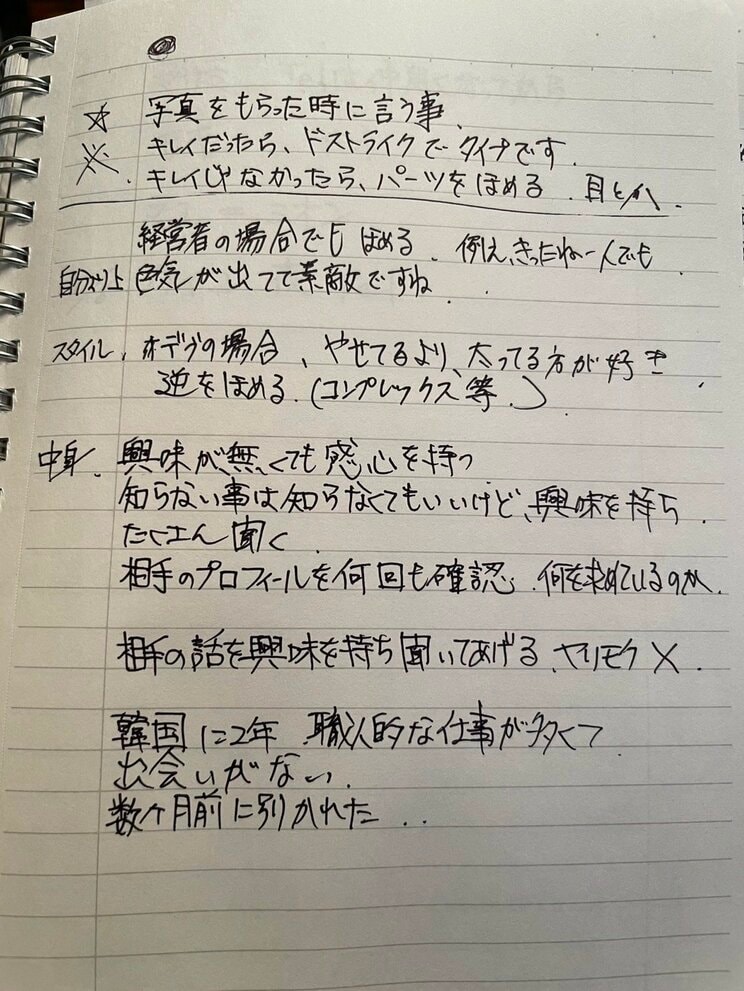 ☆ 写真をもらった時に言う事.
※ キレイだったら、ドストライクでタイプです.
. キレイじゃなかったら、パーツをほめる. 目とか.
経営者の場合でもほめる. 例え、きったねー人でも.
自分より上 色気が出てて素敵ですね.
スタイル. オデブの場合、やせてるより、太ってる方が好き.
逆をほめる.(コンプレックス等.)
中身. 興味が無くても感心を持つ
知らない事は知らなくてもいいけど、興味を持ち.
たくさん聞く.
相手のプロフィールを何回も確認. 何を求めているのか.
相手の話を興味を持ち聞いてあげる. ヤリモク×.
韓国に2年 職人的な仕事が多くて
出会いがない.
数ヶ月前に引かれた...